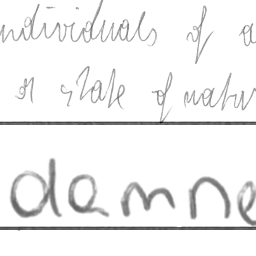 individuals of a
or state of natur
damne